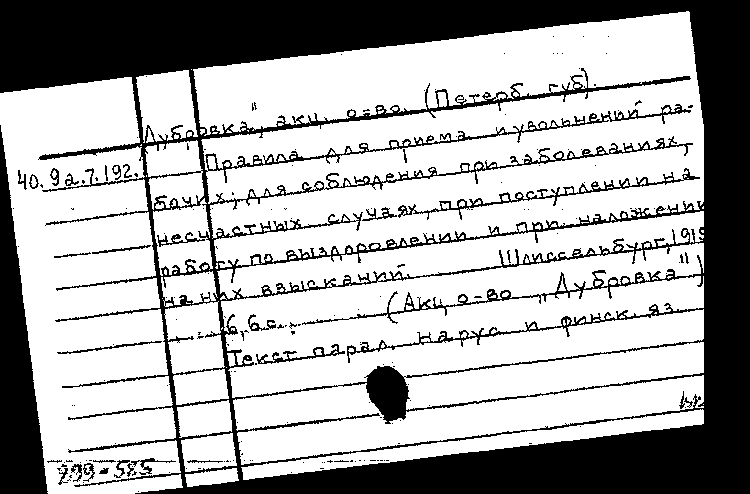 „Дубровка", акц. о-во. (Петерб. губ).
40.9а.7.192.
Правила для приема и увольнений ра-
бочих; для соблюдения при заболеваниях,
несчастных случаях, при поступлении на
работу по выздоровлении и при наложении
на них взысканий. Шлиссельбург, 1915
6,6 с. (Акц. о-во „Дубровка")
Текст парал. на рус и финск. яз.
299-585